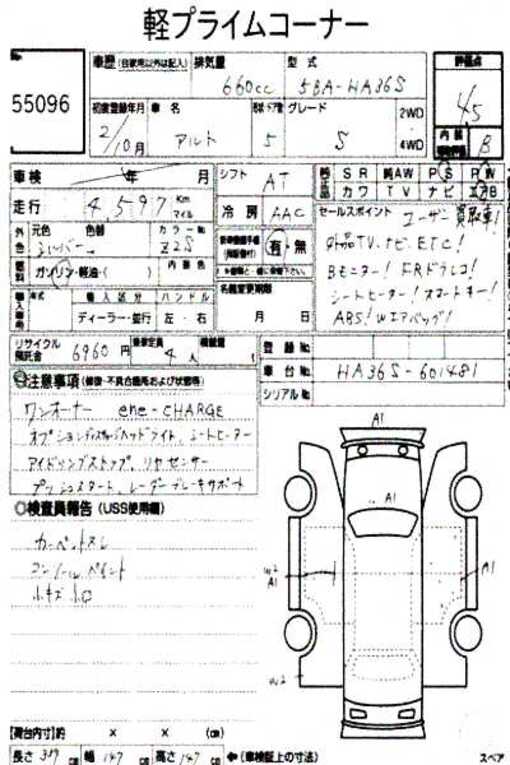 軽プライムコーナー
55096
車歴 (自家用以外は記入) 排気量 型式 評価点
660cc 5BA-HA36S 4.5
初度登録年月 車名 グレード 2WD
2/10月 アルト 5 S 4WD
内装 B
車検 年 月 シフト AT
純正品 SR 純AW PS PW
カワ TV ナビ エアB
走行 4,597 Km マイル 冷房 AAC
セールスポイント ユーザー買取車!
外品TV、ナビ、ETC!
Bモニター! FRドラレコ!
シートヒーター! スマートキー!
ABS! Wエアバッグ!
外色 元色 色替 カラーNo
シルバー Z2S
有・無
燃料 ガソリン・軽油・( ) 内装色
輸入車 年式 輸入区分 ハンドル
ディーラー・並行 左・右
名義変更期限
月 日
リサイクル預託金 6960円 乗車定員 4人 積載量 t
登録No.
車台No. HA36S-601481
シリアルNo.
注意事項 (修復・不具合箇所および状態等)
ワンオーナー ene-CHARGE
オプションディスチャージヘッドライト、シートヒーター
アイドリングストップ、リヤセンサー
プッシュスタート、レーダーブレーキサポート
検査員報告 (USS使用欄)
カーペットスレ
コンソールペイント
小キズ 小凹
A1
A1
W2
A1
A1
W2
【荷台内寸】約 × × (cm)
長さ 339 cm 幅 147 cm 高さ 147 cm ←(車検証上の寸法)
スペア